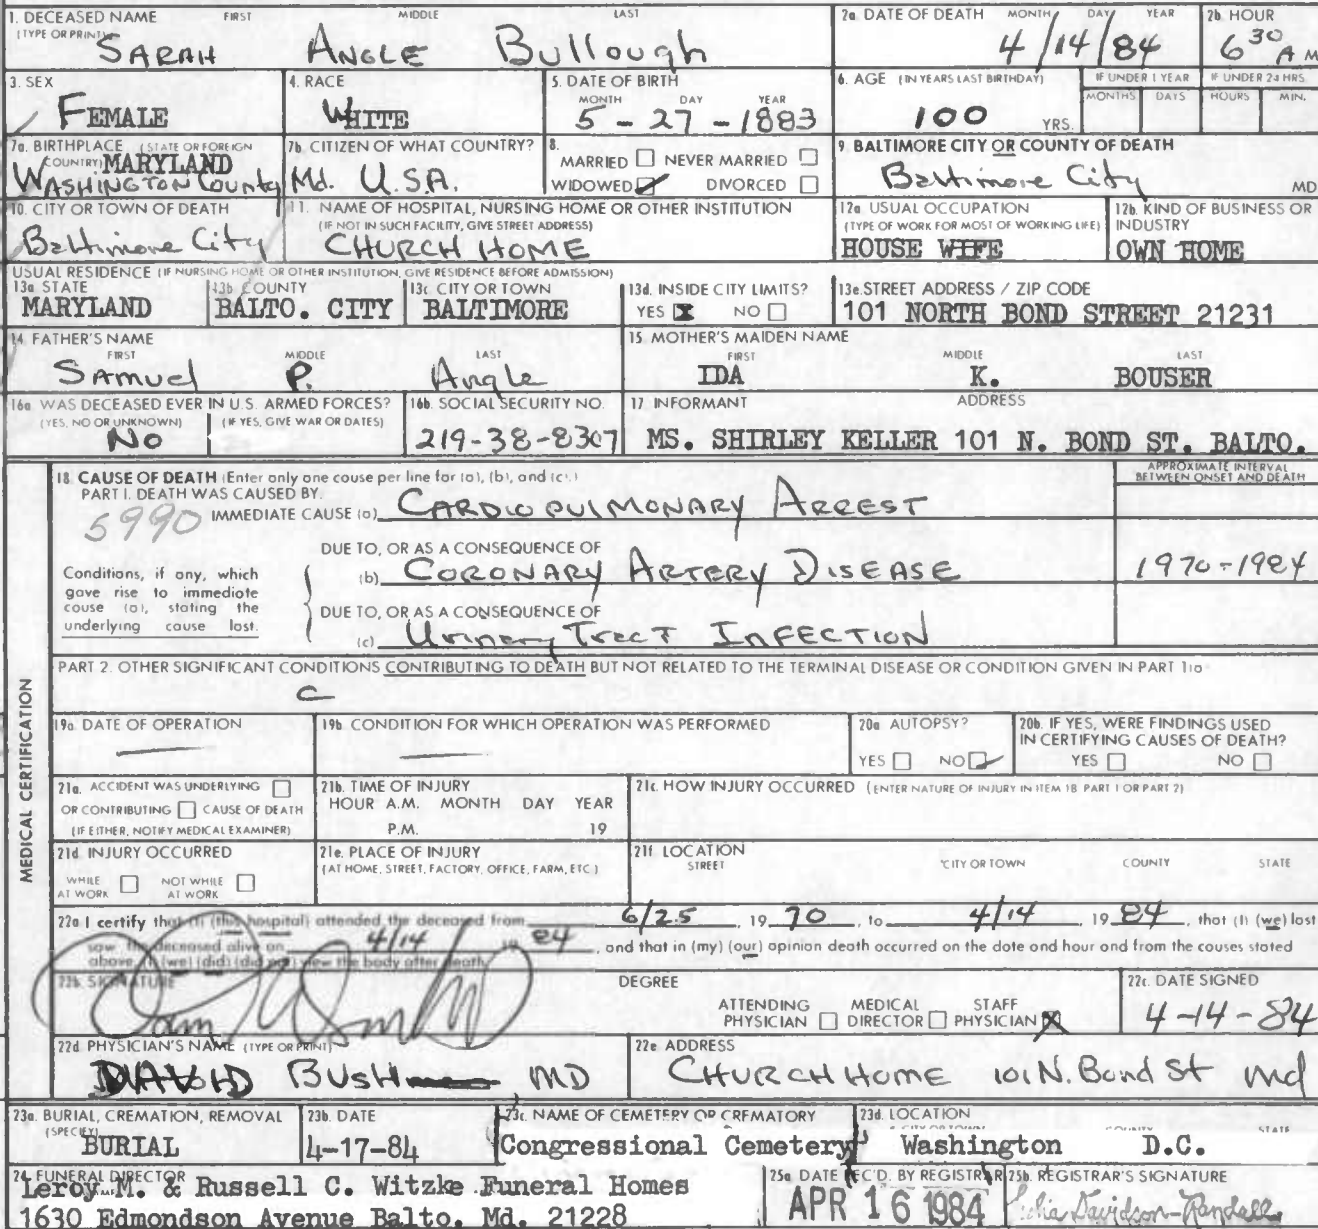 1. DECEASED NAME FIRST MIDDLE LAST
(TYPE OR PRINT)
SARAH ANGLE Bullough
2a. DATE OF DEATH MONTH DAY YEAR
4/14/84
2b. HOUR
6 30 A M
3. SEX
FEMALE
4. RACE
WHITE
5. DATE OF BIRTH
MONTH DAY YEAR
5 - 27 - 1883
6. AGE (IN YEARS LAST BIRTHDAY)
100 YRS.
IF UNDER 1 YEAR
MONTHS DAYS
IF UNDER 24 HRS.
HOURS MIN.
7a. BIRTHPLACE (STATE OR FOREIGN
COUNTRY) MARYLAND
WASHINGTON County
7b. CITIZEN OF WHAT COUNTRY?
Md. U.S.A.
8.
MARRIED NEVER MARRIED
WIDOWED DIVORCED
9. BALTIMORE CITY OR COUNTY OF DEATH
Baltimore City MD
10. CITY OR TOWN OF DEATH
Baltimore City
11. NAME OF HOSPITAL, NURSING HOME OR OTHER INSTITUTION
(IF NOT IN SUCH FACILITY, GIVE STREET ADDRESS)
CHURCH HOME
12a. USUAL OCCUPATION
(TYPE OF WORK FOR MOST OF WORKING LIFE)
HOUSE WIFE
12b. KIND OF BUSINESS OR
INDUSTRY
OWN HOME
USUAL RESIDENCE (IF NURSING HOME OR OTHER INSTITUTION, GIVE RESIDENCE BEFORE ADMISSION)
13a. STATE
MARYLAND
13b. COUNTY
BALTO. CITY
13c. CITY OR TOWN
BALTIMORE
13d. INSIDE CITY LIMITS?
YES X NO
13e. STREET ADDRESS / ZIP CODE
101 NORTH BOND STREET 21231
14. FATHER'S NAME
FIRST MIDDLE LAST
Samuel P. Angle
15. MOTHER'S MAIDEN NAME
FIRST MIDDLE LAST
IDA K. BOUSER
16a. WAS DECEASED EVER IN U.S. ARMED FORCES?
(YES, NO OR UNKNOWN) (IF YES, GIVE WAR OR DATES)
No
16b. SOCIAL SECURITY NO.
219-38-8307
17. INFORMANT ADDRESS
MS. SHIRLEY KELLER 101 N. BOND ST. BALTO.
MEDICAL CERTIFICATION
18. CAUSE OF DEATH (Enter only one cause per line for (a), (b), and (c).)
PART I. DEATH WAS CAUSED BY.
5990
IMMEDIATE CAUSE (a) CARDIOPULMONARY ARREST
APPROXIMATE INTERVAL
BETWEEN ONSET AND DEATH
Conditions, if any, which
gave rise to immediate
cause (a), stating the
underlying cause last.
DUE TO, OR AS A CONSEQUENCE OF
(b) CORONARY ARTERY DISEASE 1970-1984
DUE TO, OR AS A CONSEQUENCE OF
(c) Urinary Tract INFECTION
PART 2. OTHER SIGNIFICANT CONDITIONS CONTRIBUTING TO DEATH BUT NOT RELATED TO THE TERMINAL DISEASE OR CONDITION GIVEN IN PART 1(a)
19a. DATE OF OPERATION
19b. CONDITION FOR WHICH OPERATION WAS PERFORMED
20a. AUTOPSY?
YES NO
20b. IF YES, WERE FINDINGS USED
IN CERTIFYING CAUSES OF DEATH?
YES NO
21a. ACCIDENT WAS UNDERLYING
OR CONTRIBUTING CAUSE OF DEATH
(IF EITHER, NOTIFY MEDICAL EXAMINER)
21b. TIME OF INJURY
HOUR A.M. MONTH DAY YEAR
P.M. 19
21c. HOW INJURY OCCURRED (ENTER NATURE OF INJURY IN ITEM 18 PART 1 OR PART 2)
21d. INJURY OCCURRED
WHILE AT WORK NOT WHILE AT WORK
21e. PLACE OF INJURY
(AT HOME, STREET, FACTORY, OFFICE, FARM, ETC.)
21f. LOCATION
STREET CITY OR TOWN COUNTY STATE
22a. I certify that (I) (this hospital) attended the deceased from 6/25, 1970, to 4/14, 1984, that (I) (we) last
saw the deceased alive on 4/14 84, and that in (my) (our) opinion death occurred on the date and hour and from the causes stated
above, (I) (we) (did) (did not) view the body after death.
22b. SIGNATURE
DEGREE
ATTENDING PHYSICIAN MEDICAL DIRECTOR STAFF PHYSICIAN X
22c. DATE SIGNED
4-14-84
22d. PHYSICIAN'S NAME (TYPE OR PRINT)
DAVID BUSH MD
22e. ADDRESS
CHURCH HOME 101 N. Bond St Md
23a. BURIAL, CREMATION, REMOVAL
(SPECIFY)
BURIAL
23b. DATE
4-17-84
23c. NAME OF CEMETERY OR CREMATORY
Congressional Cemetery
23d. LOCATION
CITY OR TOWN COUNTY STATE
Washington D.C.
24. FUNERAL DIRECTOR
Leroy M. & Russell C. Witzke Funeral Homes
1630 Edmondson Avenue Balto. Md. 21228
25a. DATE REC'D. BY REGISTRAR
APR 16 1984
25b. REGISTRAR'S SIGNATURE
Davidson-Randall